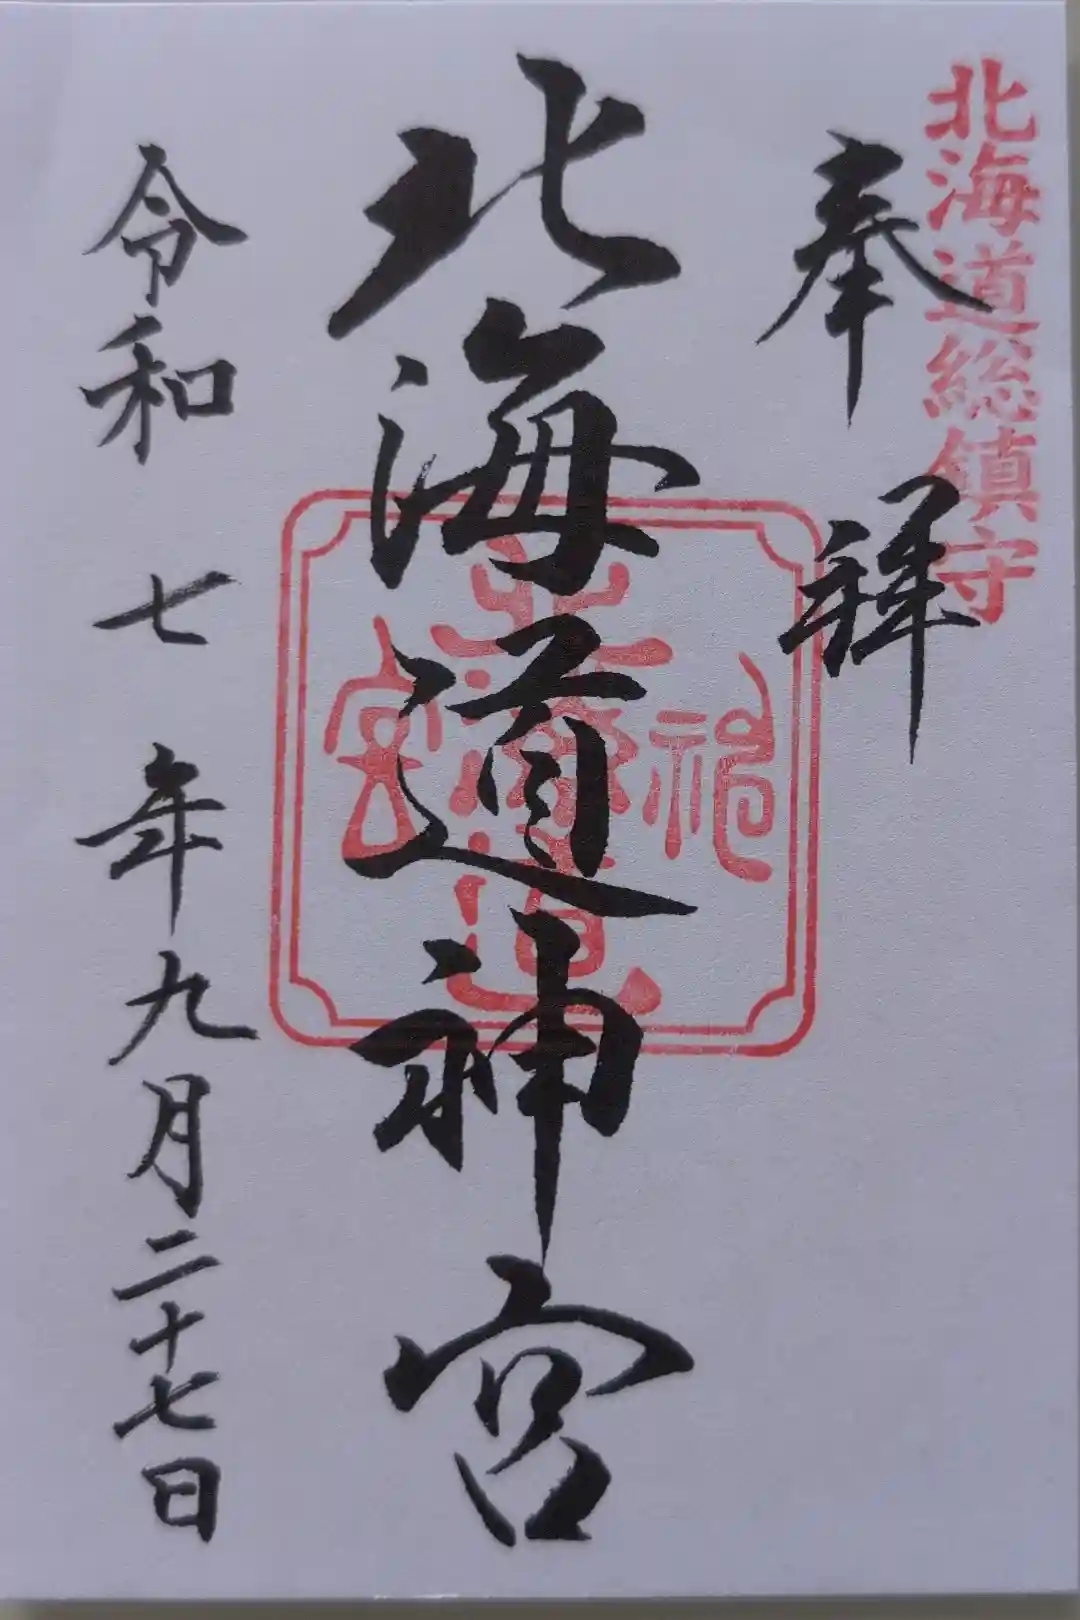 北海道総鎮守
奉拝
北海道神宮
北海道神宮
令和七年九月二十七日